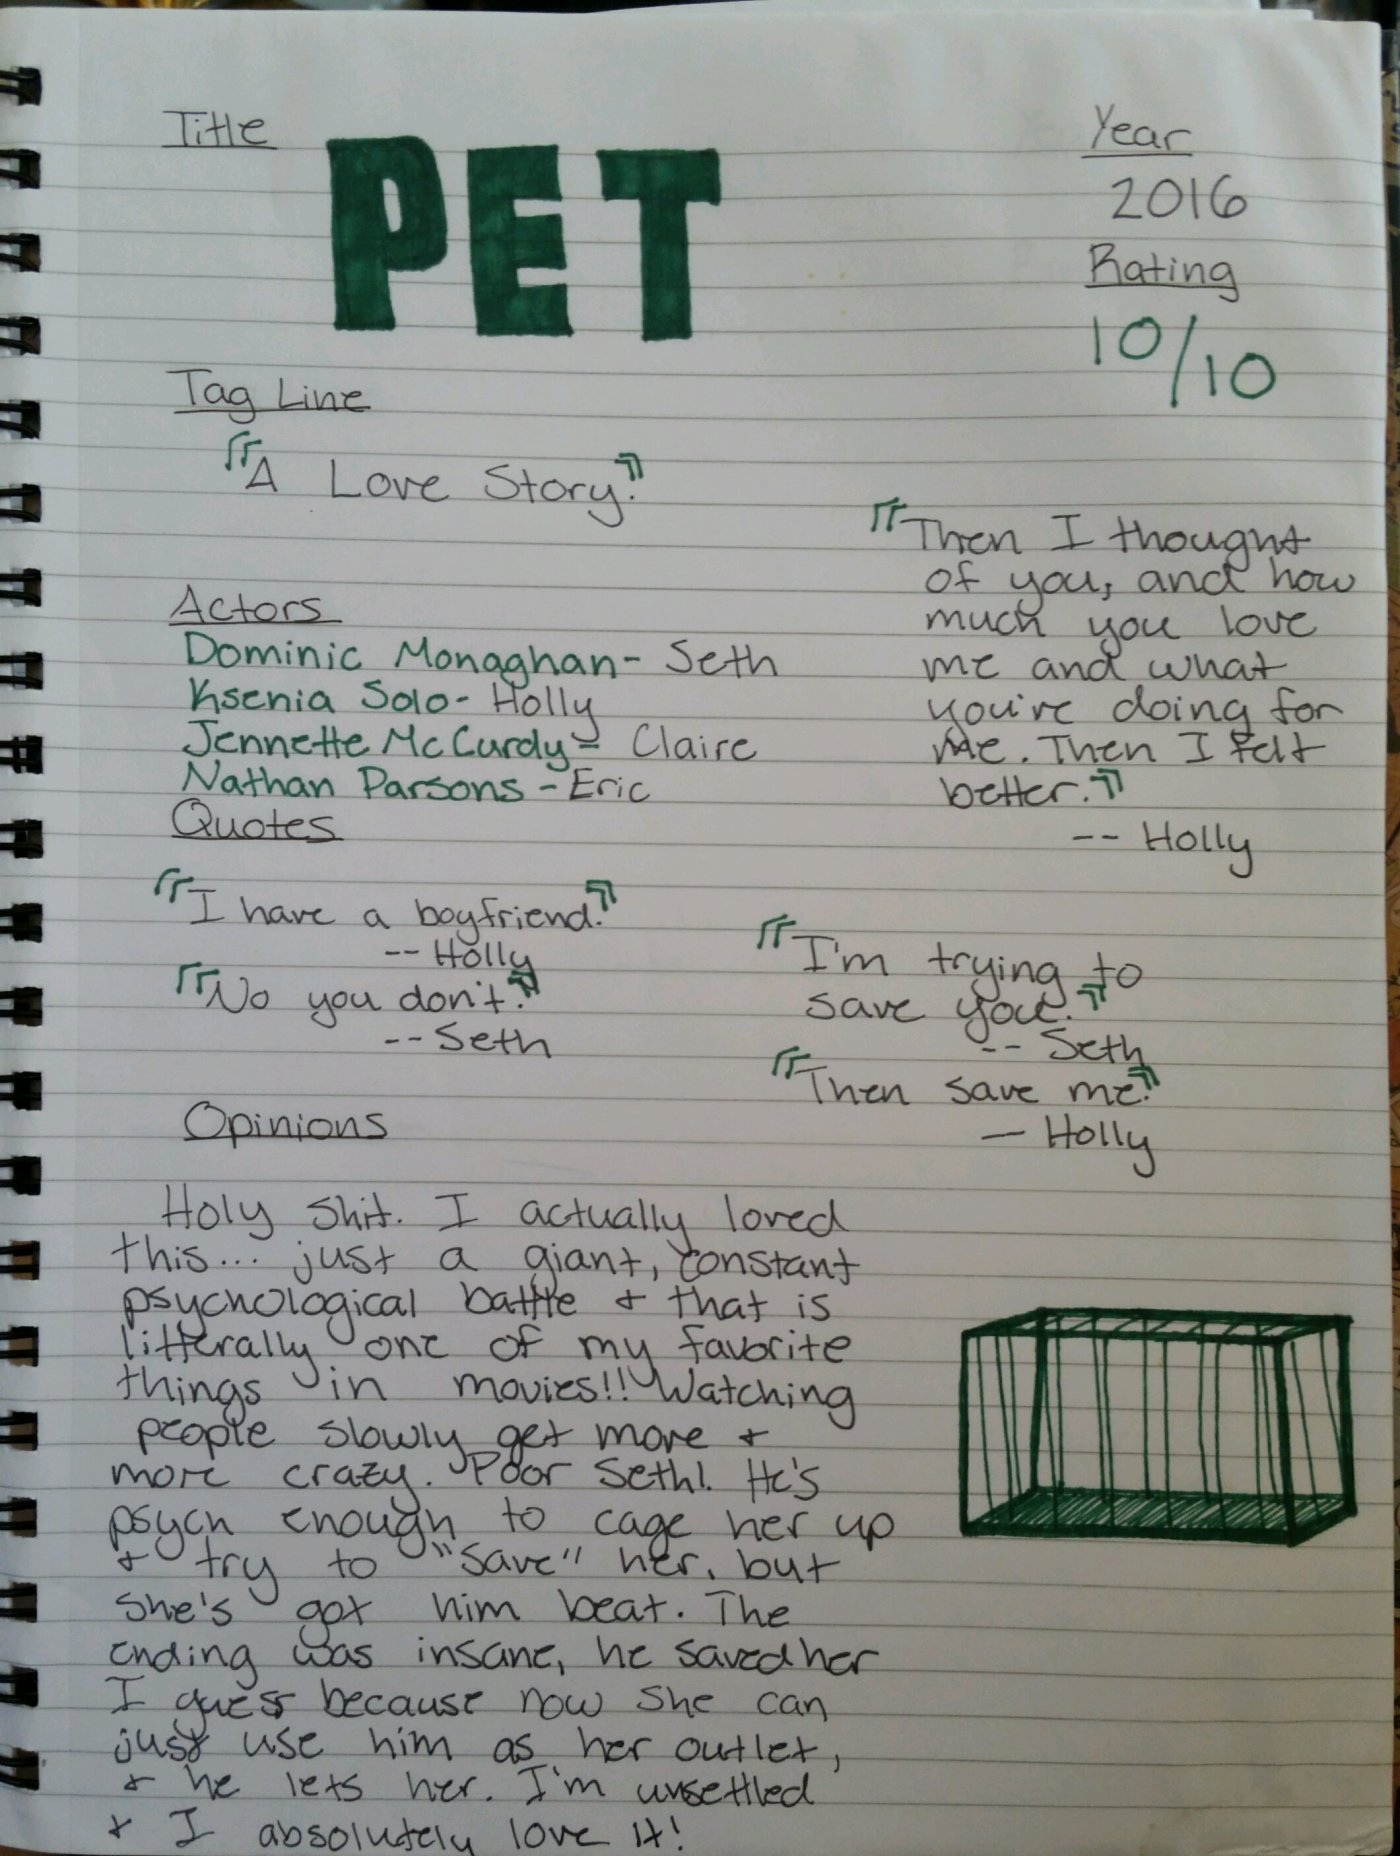 Title
PET
Year
2016
Rating
10/10
Tag Line
"A Love Story."
Actors
Dominic Monaghan- Seth
Ksenia Solo- Holly
Jennette McCurdy- Claire
Nathan Parsons - Eric
Quotes
"Then I thought
of you, and how
much you love
me and what
you're doing for
me. Then I felt
better."
-- Holly
"I have a boyfriend."
-- Holly
"No you don't."
-- Seth
"I'm trying to
save you."
-- Seth
"Then save me."
— Holly
Opinions
Holy shit. I actually loved
this... just a giant, constant
psychological battle + that is
litterally one of my favorite
things in movies!! Watching
people slowly get more +
more crazy. Poor Seth! He's
psych enough to cage her up
+ try to "save" her, but
she's got him beat. The
ending was insane, he saved her
I guess because now she can
just use him as her outlet,
+ he lets her. I'm unsettled
+ I absolutely love it!